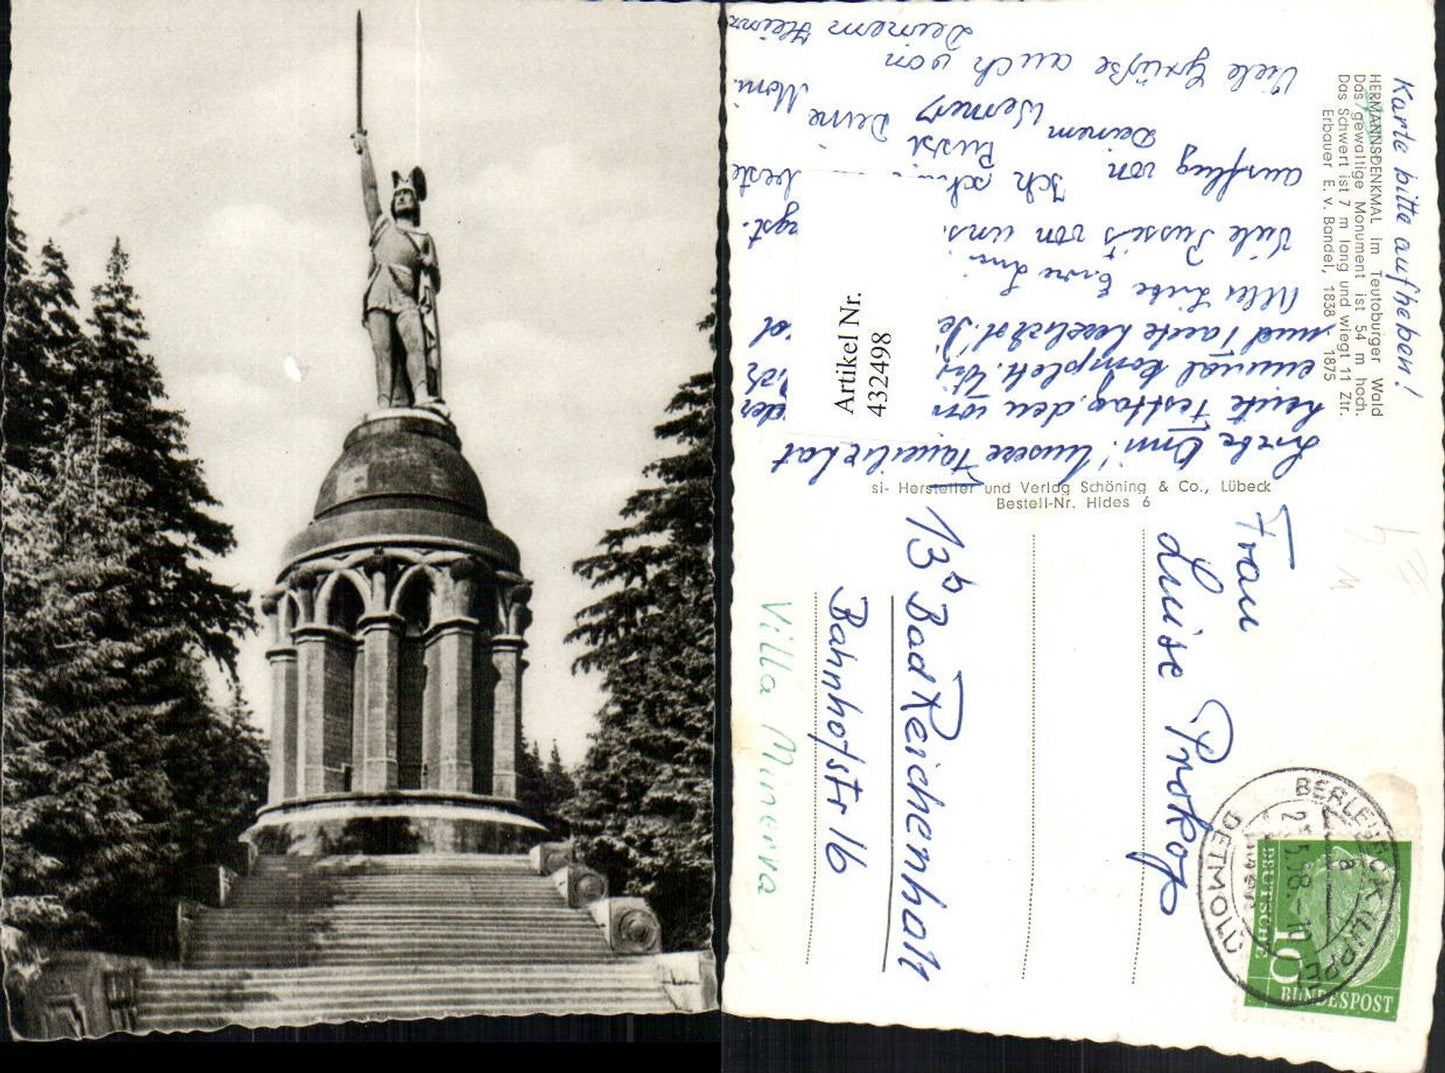 HERMANNSDENKMAL im Teutoburger Wald
Das gewaltige Monument ist 54 m hoch.
Das Schwert ist 7 m lang und wiegt 11 Ztr.
Erbauer E. v. Bandel, 1838 - 1875
Karte bitte aufheben!
Liebe Omi! Unsere Familie hat
heute Festtag, den von der
einmal komplett. Wir
und Tante herzlichst.
Alles Liebe Eure
Viele Bussis von uns.
ausflug von
Ich beste
Deinem Werner
Bussi Deine Moni.
Viele Grüße auch von
Deinem Heinz
Artikel Nr.
432498
si- Hersteller und Verlag Schöning & Co., Lübeck
Bestell-Nr. Hides 6
Frau
Luise Prokop
13b Bad Reichenhall
Bahnhofstr 16
Villa Minerva
BERLEBECK (LIPPE)
DETMOLD
DEUTSCHE
10
BUNDESPOST